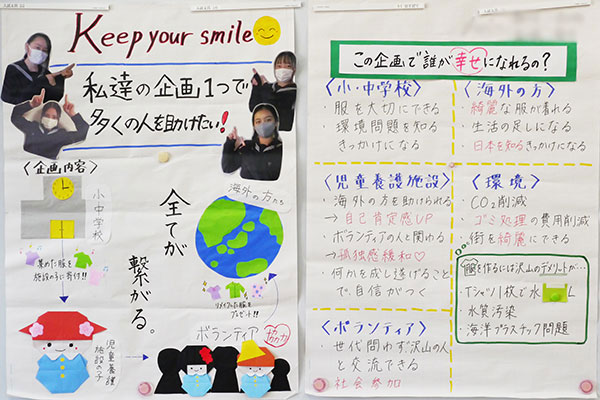 Keep your smile
私達の企画1つで
多くの人を助けたい!
〈企画内容〉
小中学校
集めた服を
施設の子に寄付!!
児童養護
施設の子
全てが
繋がる。
海外の方たち
リメイクした服を
プレゼント!!
ボランティア
協力
この企画で誰が幸せになれるの?
〈小・中学校〉
・服を大切にできる
・環境問題を知る
きっかけになる
〈海外の方〉
・綺麗な服が着れる
・生活の足しになる
・日本を知るきっかけになる
〈児童養護施設〉
・海外の方を助けられる
→自己肯定感UP
・ボランティアの人と関われる
→孤独感緩和♡
・何かを成し遂げること
で自信がつく
〈環境〉
・CO2削減
・ゴミ処理の費用削減
・街を綺麗にできる
服を作るには沢山のデメリットが…
・Tシャツ1枚で水 L
・水質汚染
・海洋プラスチック問題
〈ボランティア〉
・世代問わず沢山の人
と交流できる
・社会参加